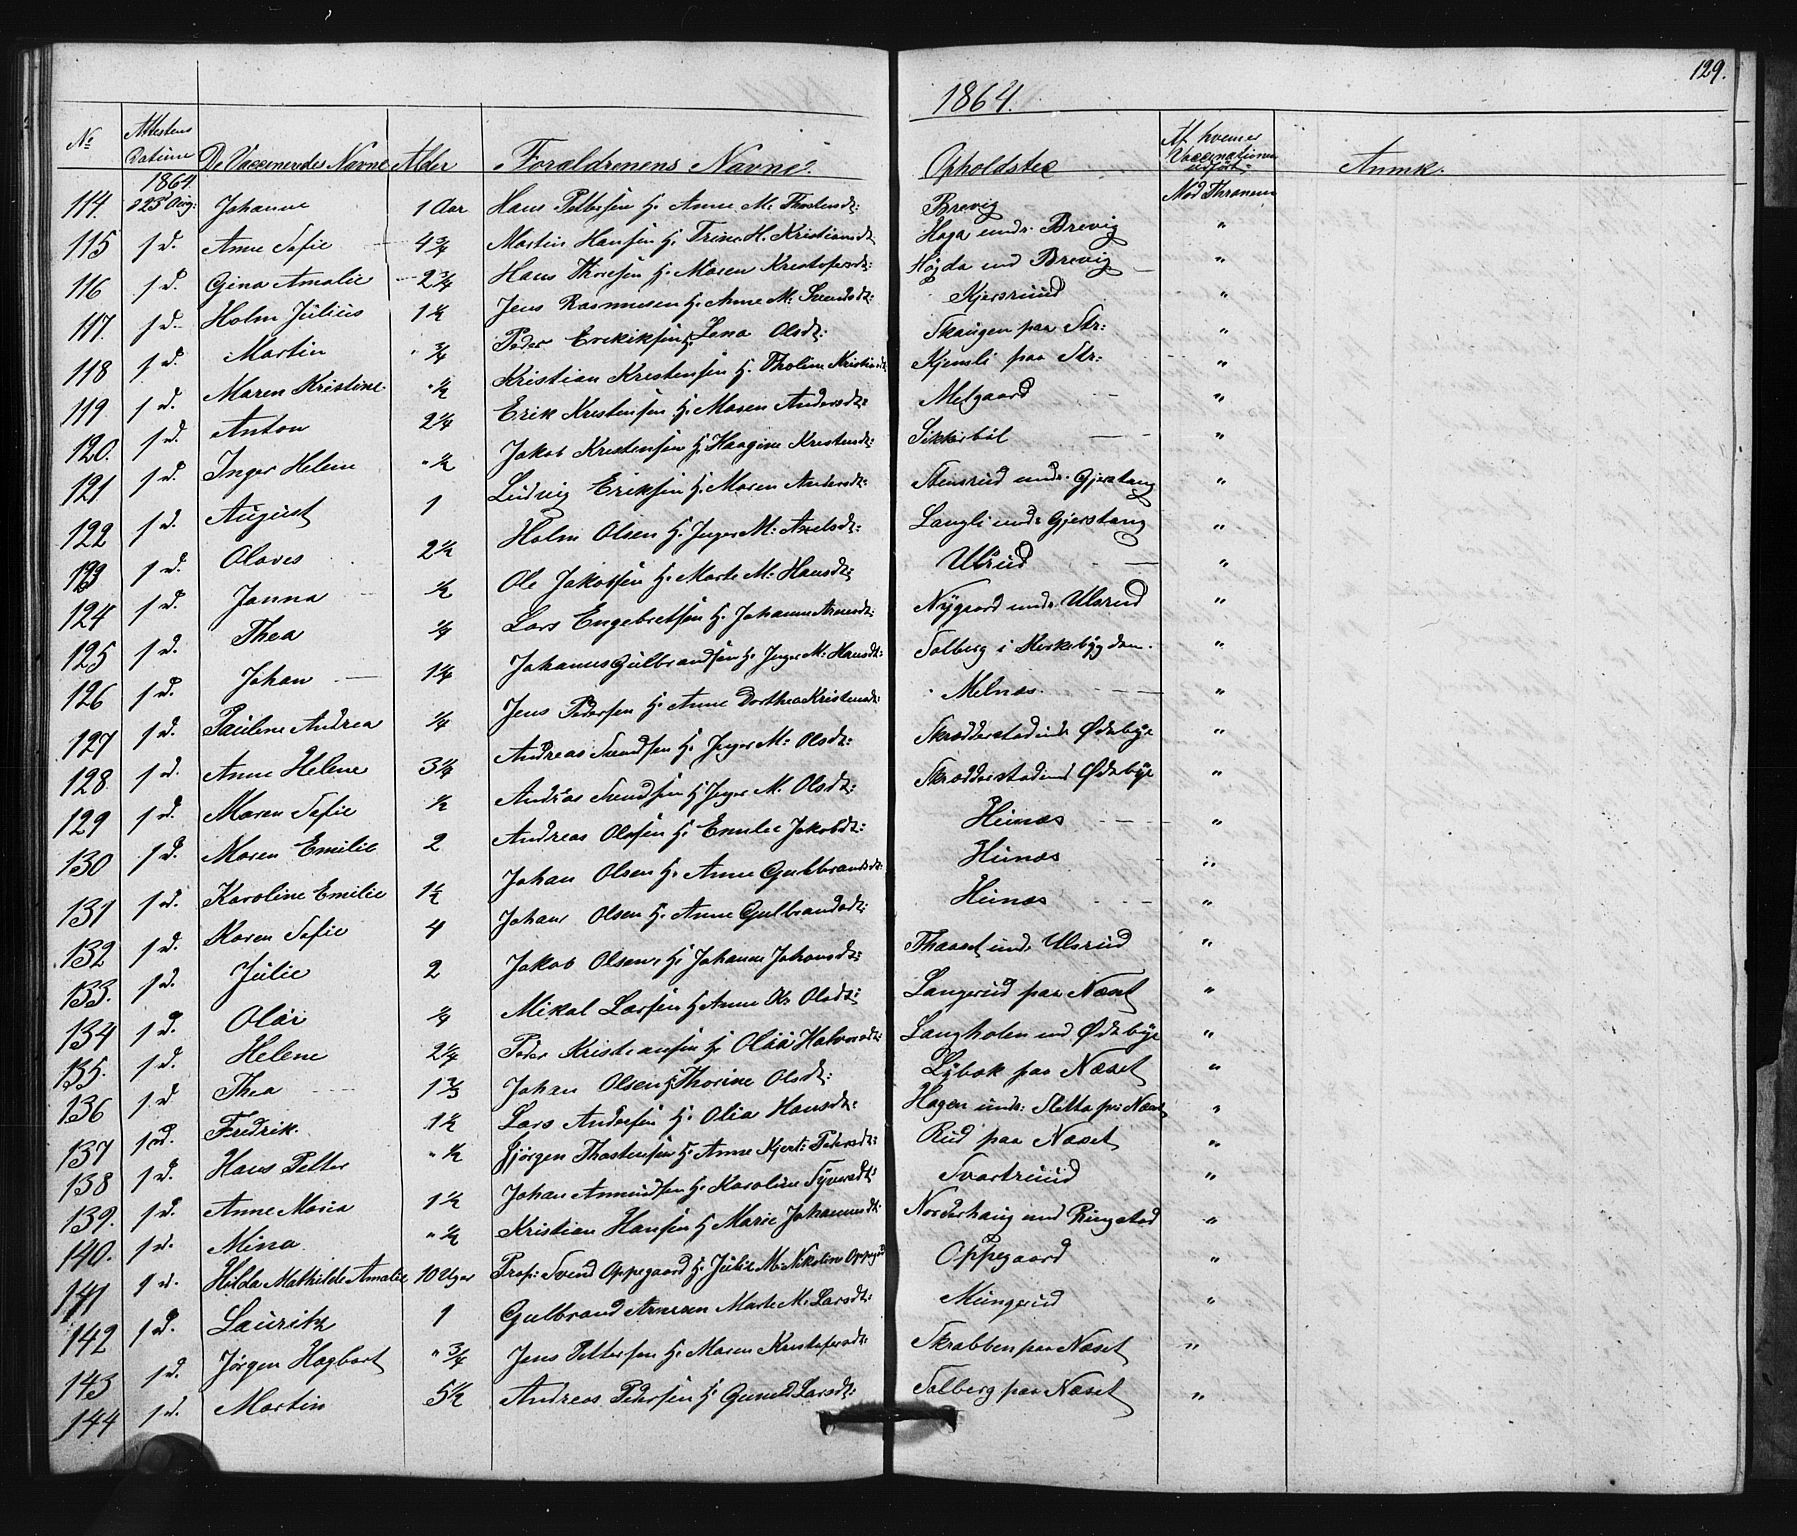 129.
1864.
No Attestens Datum De Vaccineredes Navne Alder Forældrenens Navne. Opholdsted Af hvem Vaccinationen udført Anmk.
1864
114. 23 Aug: Johanne 1 Aar Hans Pettersen H. Anne M. Thostensdt: Brevig Mod Thranum
115 s d. Anne Sofie 4 3/4 Martin Hansen H. Trine H. Kristiansdt Haga und. Brevig "
116 s d. Gina Amalie 2 3/4 Hans Thoresen H. Maren Kristofersdt: Højda und Brevig "
117. s d. Holm Julius 1 1/2 Jens Rasmusen H. Anne M. Svendsdt: Kjersruud "
118 s d. Martin " 3/4 Peder Erikiksen H. Lena Olsdt: Skaugen paa Str: "
119 s d. Maren Kristine " 1/2 Kristian Krestensen H. Tholine Kristiansdt Kjensli paa Str: "
120. s d. Anton 2 1/4 Erik Kristensen H. Maren Andersdt: Melgaard "
121 s d. Inger Helene " 1/2 Jakob Kristensen H. Haagine Krestensdt: Sikkerböl "
122 s d. August 1 Ludvig Eriksen H. Maren Andersdt: Stensrud und. Gjerstang "
123 s d. Olaves 2 1/2 Holm Olsen H. Inger M. Axelsdt: Langli und. Gjerstang "
124 s d. Janna 1/2 Ole Jakobsen H. Marte M. Hansdt: Ulsrud "
125 s d. Thea 1/4 Lars Engebretsen H. Johanne Arnesdt: Nygaard und. Ulsrud "
126 s d. Johan 1 1/4 Johannes Gulbrandsen H. Inger M. Hansdt: Solberg i Herkebygden. "
127 s d. Pauline Andrea 1/4 Jens Pedersen H. Anne Dorthea Kristensdt: Melnæs. "
128. s d. Anne Helene 3 1/4 Andreas Svendsen H. Inger M. Olsdt: Skrædderstad und. Ødebye "
129 s d. Maren Sofie 1/2 Andreas Svendsen H. Inger M. Olsdt: Skrædderstad und Ødebye "
130 s d. Maren Emilie 2 Andreas Olsen H. Emilie Jakobdt: Heinæs "
131 s d. Karoline Emilie 1 1/2 Johan Olsen H. Anne Gulbrandsdt: Heinæs "
132 s d. Maren Sofie 4 Johans Olsen H. Anne Gulbrandsdt: Heinæs "
133. s d. Julie 2 Jakob Olsen H. Johanne Johansdt: Thaaset und. Ulsrud "
134 s d. Olai 1/4 Mikal Larsen H. Anne Kr Olsdt: Langerud paa Næset "
135. s d. Helene 2 1/4 Peder Kristiansen H. Olia Halvorsdt: Langholen und Ødebye "
136 s d. Thea 1 2/3 Johan Olsen H. Thorine Olsdt: Lybæk paa Næset "
137 s d. Fredrik. 1 1/2 Lars Andersen H. Olia Hansdt: Hagen und: Sletta pa Næset "
138 s d. Hans Petter " 1/2 Gjørgen Thostensen H. Anne Kjerst: Pedersdt: Rud paa Næset "
139. s d. Anne Maria 1 1/2 Johan Amundsen H. Karoline Syversdt: Svartruud "
140. s d. Mina. " 1/2 Kristian Hansen H. Marie Johannesdt. Nordshaug und Ringstad "
141 s d. Hilda Mathilde Amalie 10 Uger Prop: Svend Oppegaard H. Julie M. Nikoline Oppegrd Oppegaard "
142 s d. Lauritz 1 Gulbrand Arnesen Marte M. Larsdt: Mungerud "
143 s d. Jørgen Hagbart " 3/4 Jens Pettersen H. Maren Kristofersdt: Skrabben paa Næset "
144 s d. Martin 5 1/2 Andreas Pedersen H. Gunild Larsdt: Solberg paa Næset "